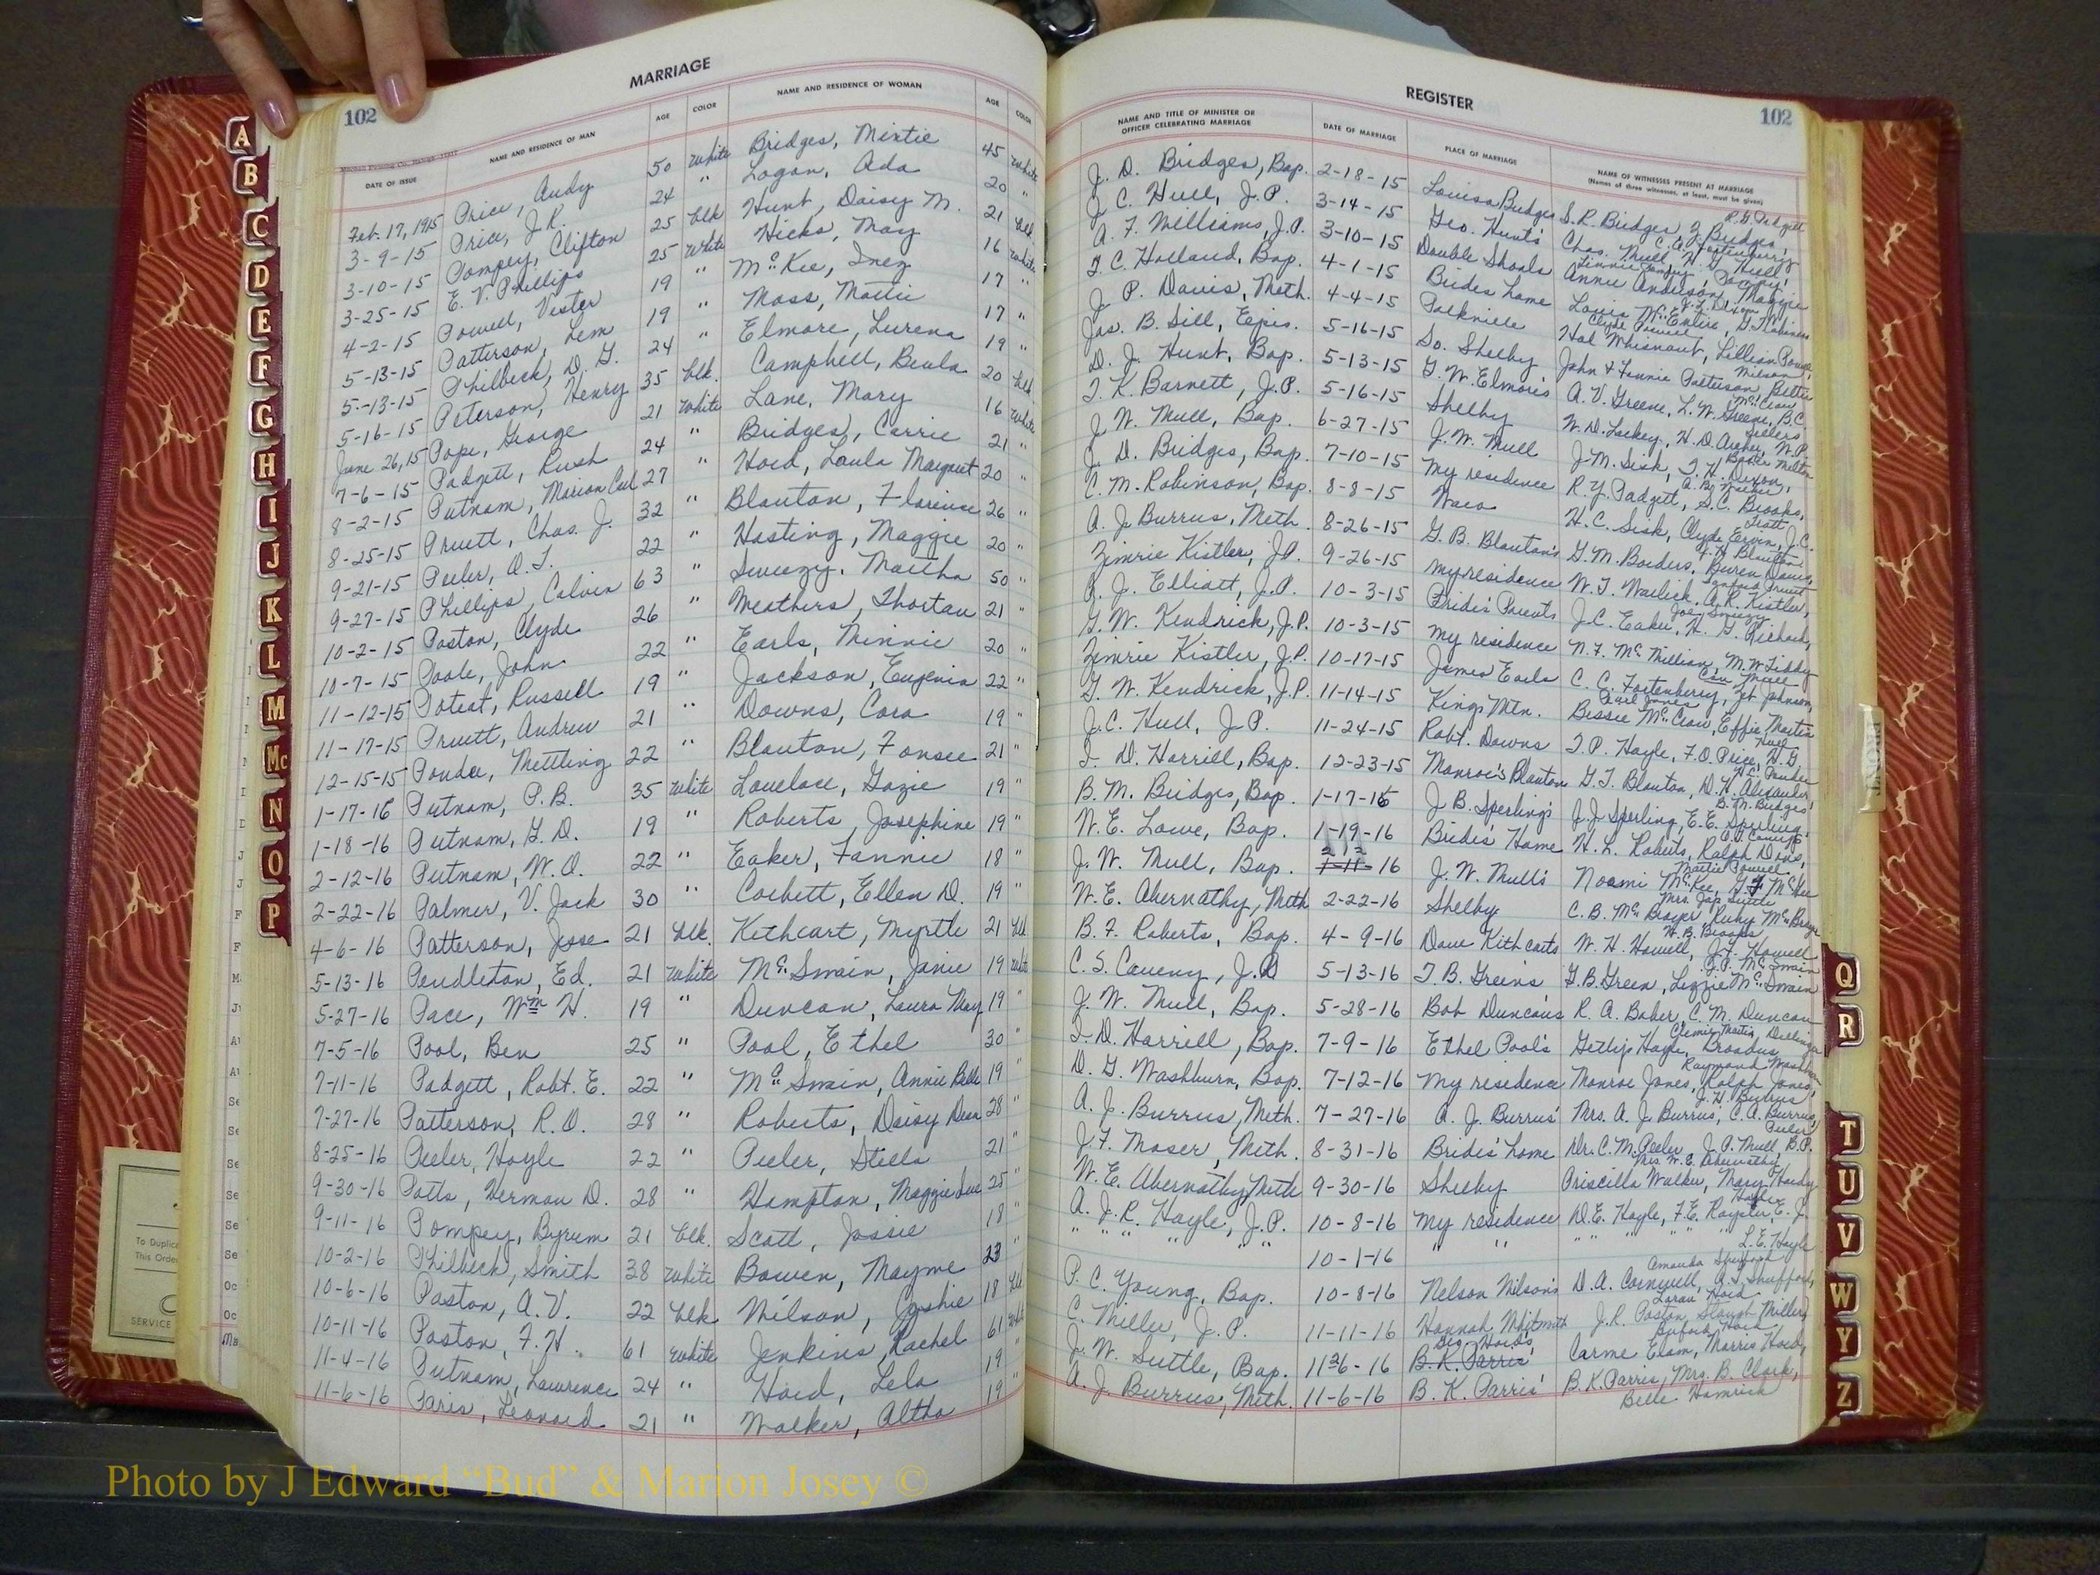 MARRIAGE
102
DATE OF ISSUE NAME AND RESIDENCE OF MAN AGE COLOR NAME AND RESIDENCE OF WOMAN AGE COLOR
Feb. 17, 1915 Price, Andy 50 White Bridges, Mirtie 45 White
3-9-15 Price, J.R. 24 " Logan, Ada 20 "
3-10-15 Pompey, Clifton 25 blk Hunt, Daisy M. 21 blk
3-25-15 E. V. Phillips 25 White Hicks, May 16 White
4-2-15 Powell, Vester 19 " McKee, Inez 17 "
5-13-15 Patterson, Lem 19 " Moss, Mattie 17 "
5-13-15 Philbeck, D. G. 24 " Elmore, Lurena 19 "
5-16-15 Peterson, Henry 35 blk. Campbell, Beula 20 blk
June 26, 15 Pope, George 21 White Lane, Mary 16 White
7-6-15 Padgett, Rush 24 " Bridges, Carrie 21 "
8-2-15 Putnam, Marion Carl 27 " Hord, Loula Margaret 20 "
8-25-15 Pruett, Chas. J. 32 " Blanton, Florence 26 "
9-21-15 Peeler, O. T. 22 " Hasting, Maggie 20 "
9-27-15 Phillips, Calvin 63 " Sweezy, Martha 50 "
10-2-15 Poston, Clyde 26 " Weathers, Thortau 21 "
10-7-15 Poole, John 22 " Earls, Minnie 20 "
11-12-15 Poteat, Russell 19 " Jackson, Eugenia 22 "
11-17-15 Pruett, Andrew 21 " Downs, Cora 19 "
12-15-15 Ponder, Mettling 22 " Blanton, Fonsee 21 "
1-17-16 Putnam, P. B. 35 White Lovelace, Gazie 19 "
1-18-16 Putnam, G. D. 19 " Roberts, Josephine 19 "
2-12-16 Putnam, W. O. 22 " Eaker, Fannie 18 "
2-22-16 Palmer, V. Jack 30 " Corbett, Ellen D. 19 "
4-6-16 Patterson, Jesse 21 blk. Kethcart, Myrtle 21 blk
5-13-16 Pendleton, Ed. 21 White McSwain, Janie 19 White
5-27-16 Pace, Wm H. 19 " Duncan, Laura May 19 "
7-5-16 Pool, Ben 25 " Pool, Ethel 30 "
7-11-16 Padgett, Robt. E. 22 " McSwain, Annie Belle 19 "
7-27-16 Patterson, R. O. 28 " Roberts, Daisy Dean 28 "
8-25-16 Peeler, Hoyle 22 " Peeler, Stella 21 "
9-30-16 Potts, Herman D. 28 " Hampton, Maggie Sue 25 "
9-11-16 Pompey, Byrum 21 blk. Scott, Jossie 18 "
10-2-16 Philbeck, Smith 38 White Bowen, Mayme 23 "
10-6-16 Poston, A. V. 22 blk Wilson, Joshie 18 blk
10-11-16 Poston, F. H. 61 White Jenkins, Rachel 61 White
11-4-16 Putnam, Lawrence 24 " Hord, Lela 19 "
11-6-16 Paris, Leonard 21 " Walker, Altha 19 "
REGISTER
102
NAME AND TITLE OF MINISTER OR OFFICER CELEBRATING MARRIAGE DATE OF MARRIAGE PLACE OF MARRIAGE NAME OF WITNESSES PRESENT AT MARRIAGE
(Names of three witnesses, at least, must be given)
J. D. Bridges, Bap. 2-18-15 Louisa Bridges S. R. Bridges, Z Bridges,
J. C. Hull, J.P. 3-14-15 Geo. Hunt's Chas. Hull,
A. F. Williams, J.P. 3-10-15 Double Shoals Annie Anderson, Maggie
T. C. Holland, Bap. 4-1-15 Brides home Louis McEntire,
J. P. Davis, Meth. 4-4-15 Polkville Hal Whisnant, Lillian Powell
Jas. B. Sill, Epis. 5-16-15 So. Shelby John & Fannie Patterson, Bettie
D. J. Hunt, Bap. 5-13-15 G. W. Elmore's A. V. Greene, L. W. Greene, B.C.
T. K. Barnett, J.P. 5-16-15 Shelby W. D. Lackey, H. D. Archer, W. P.
J. W. Mull, Bap. 6-27-15 J. W. Mull J. M. Sisk, T. H. Dixon,
J. D. Bridges, Bap. 7-10-15 my residence R. Y. Padgett, S. C. Brooks,
C. M. Robinson, Bap. 8-8-15 Waco H. C. Sisk, Clyde Ervin, J. C.
A. J. Burrus, Meth. 8-26-15 G. B. Blanton's G. M. Borders, Buren Davis
Zimrie Kistler, J.P. 9-26-15 my residence W. T. Warlick, A. R. Kistler,
R. J. Elliott, J.P. 10-3-15 Bride's Parents J. C. Eaker, H. G. Richard,
G. W. Kendrick, J.P. 10-3-15 my residence N. F. McMillian, M. W. Liddy
Zimrie Kistler, J.P. 10-17-15 James Earls C. C. Fortenberry, Zet Johnson,
G. W. Kendrick, J.P. 11-14-15 Kings Mtn. Bessie McCraw, Effie Martin
J. C. Hull, J.P. 11-24-15 Robt. Downs T. P. Hoyle, F. O. Price, H. G. Hull
I. D. Harrill, Bap. 12-23-15 Monroe's Blanton G. T. Blanton, D. H. Alexander,
B. M. Bridges, Bap. 1-17-16 J. B. Sperling's J. J. Sperling, E. E. Sperling, B. M. Bridges
W. E. Lowe, Bap. 1-19-16 Bride's Home H. L. Roberts, Ralph Doris,
J. W. Mull, Bap. 2 12 1-11-16 J. W. Mull's Noami McKee,
W. E. Abernathy, Meth 2-22-16 Shelby C. B. McBrayer, Ruby McBrayer
B. F. Roberts, Bap. 4-9-16 Dave Kithcarts W. H. Howell, J. F. Howell
C. S. Caveny, J.P. 5-13-16 T. B. Green's G. B. Green, Lizzie McSwain
J. W. Mull, Bap. 5-28-16 Bob Duncan's R. A. Baber, C. M. Duncan
I. D. Harrill, Bap. 7-9-16 Ethel Pool's
D. G. Washburn, Bap. 7-12-16 My residence Monroe Jones, Ralph Jones,
A. J. Burrus, Meth. 7-27-16 A. J. Burrus' Mrs. A. J. Burrus, C. A. Burrus, J. H. Burrus
J. F. Moser, Meth. 8-31-16 Bride's home Dr. C. M. Peeler, J. P. Mull, B. P. Peeler
W. E. Abernathy, Meth 9-30-16 Shelby Priscilla Walker, Mary Hardy Mrs. W. E. Abernathy
A. J. R. Hoyle, J.P. 10-8-16 My residence D. E. Hoyle, F. E. Royster, E. J. Hoyle
" " " " " 10-1-16 " " " " " " L. E. Hoyle
P. C. Young, Bap. 10-8-16 Nelson Wilson's D. A. Cornwell,
C. Miller, J.P. 11-11-16 Hannah Whitworth J. R. Poston, Slough Miller,
J. W. Suttle, Bap. 11-26-16 B. K. Parris' Carme Elam, Morris Hord,
A. J. Burrus, Meth. 11-6-16 B. K. Parris' B. K. Parris, Mrs. B. Clark, Belle Hamrick
A
B
C
D
E
F
G
H
I
J
K
L
M
Mc
N
O
P
Q
R
T
U
V
W
Y
Z
To Duplic
This Order
SERVICE
Photo by J Edward “Bud” & Marion Josey ©